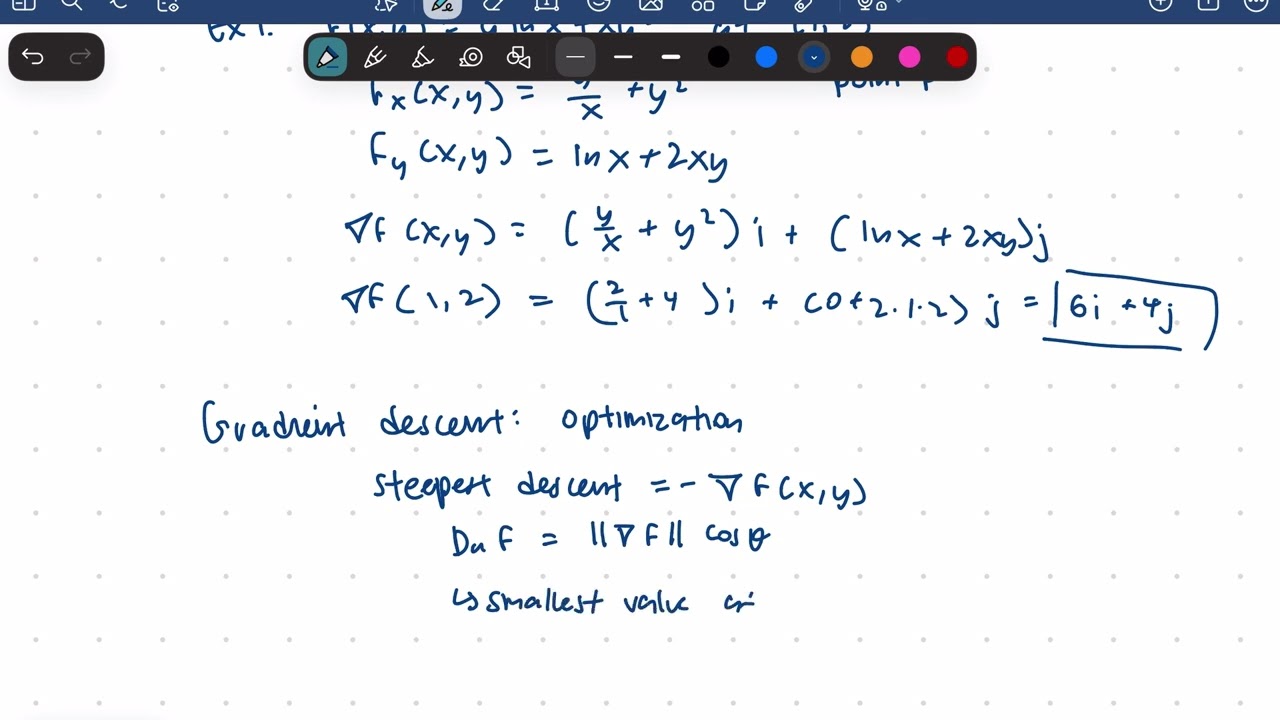 Ex 1.
fx(x,y) = y/x + y² point P
Fy(x,y) = lnx + 2xy
∇F(x,y) = (y/x + y²)i + (lnx + 2xy)j
∇F(1,2) = (2/1 + 4)i + (0+2·1·2)j = 6i + 4j
Gradient descent: optimization
steepest descent = - ∇F(x,y)
DuF = ||∇F|| cosθ
↳ smallest value